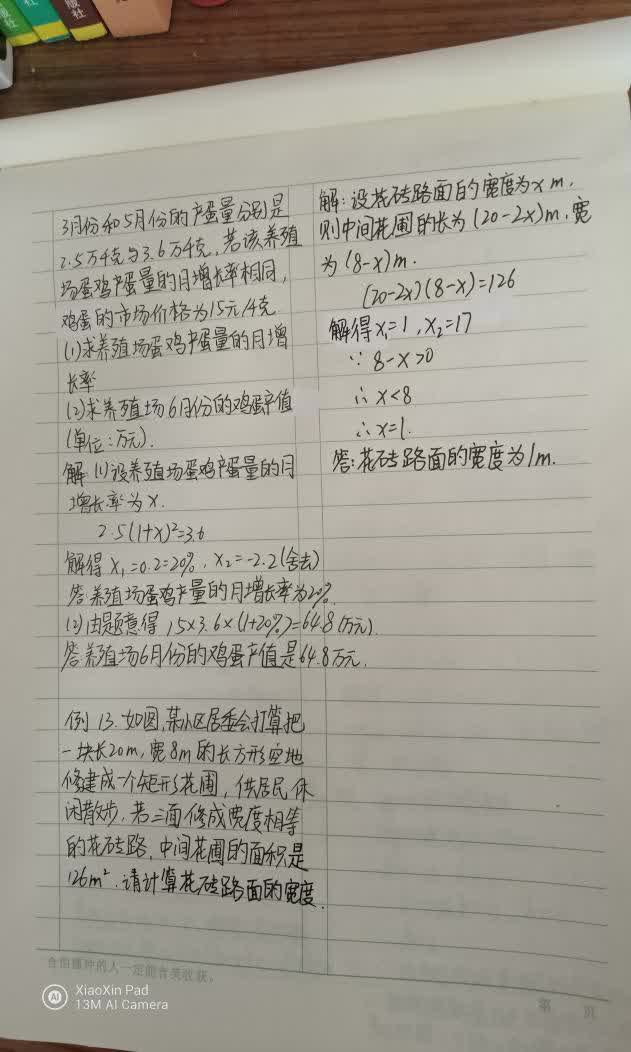 版社
版社
3月份和5月份的产蛋量分别是
2.5万千克与3.6万千克,若该养殖
场蛋鸡产蛋量的月增长率相同,
鸡蛋的市场价格为15元/千克
(1)求养殖场蛋鸡产蛋量的月增
长率
(2)求养殖场6月份的鸡蛋产值
(单位:万元).
解(1)设养殖场蛋鸡产蛋量的月
增长率为x.
2.5(1+x)²=3.6
解得x₁=0.2=20%,x₂=-2.2(舍去)
答养殖场蛋鸡产量的月增长率为20%.
(2)由题意得,15×3.6×(1+20%)=64.8(万元).
答养殖场6月份的鸡蛋产值是64.8万元.
例13.如图,某小区居委会打算把
一块长20m,宽8m的长方形空地
修建成一个矩形花圃,供居民休
闲散步,若三面修成宽度相等
的花砖路,中间花圃的面积是
126m².请计算花砖路面的宽度.
解:设花砖路面的宽度为xm,
则中间花圃的长为(20-2x)m,宽
为(8-x)m.
(20-2x)(8-x)=126
解得x₁=1,x₂=17
∵8-x>0
∴x<8
∴x=1.
答:花砖路面的宽度为1m.
含泪播种的人一定能含笑收获。
第 页
XiaoXin Pad
13M AI Camera
AI